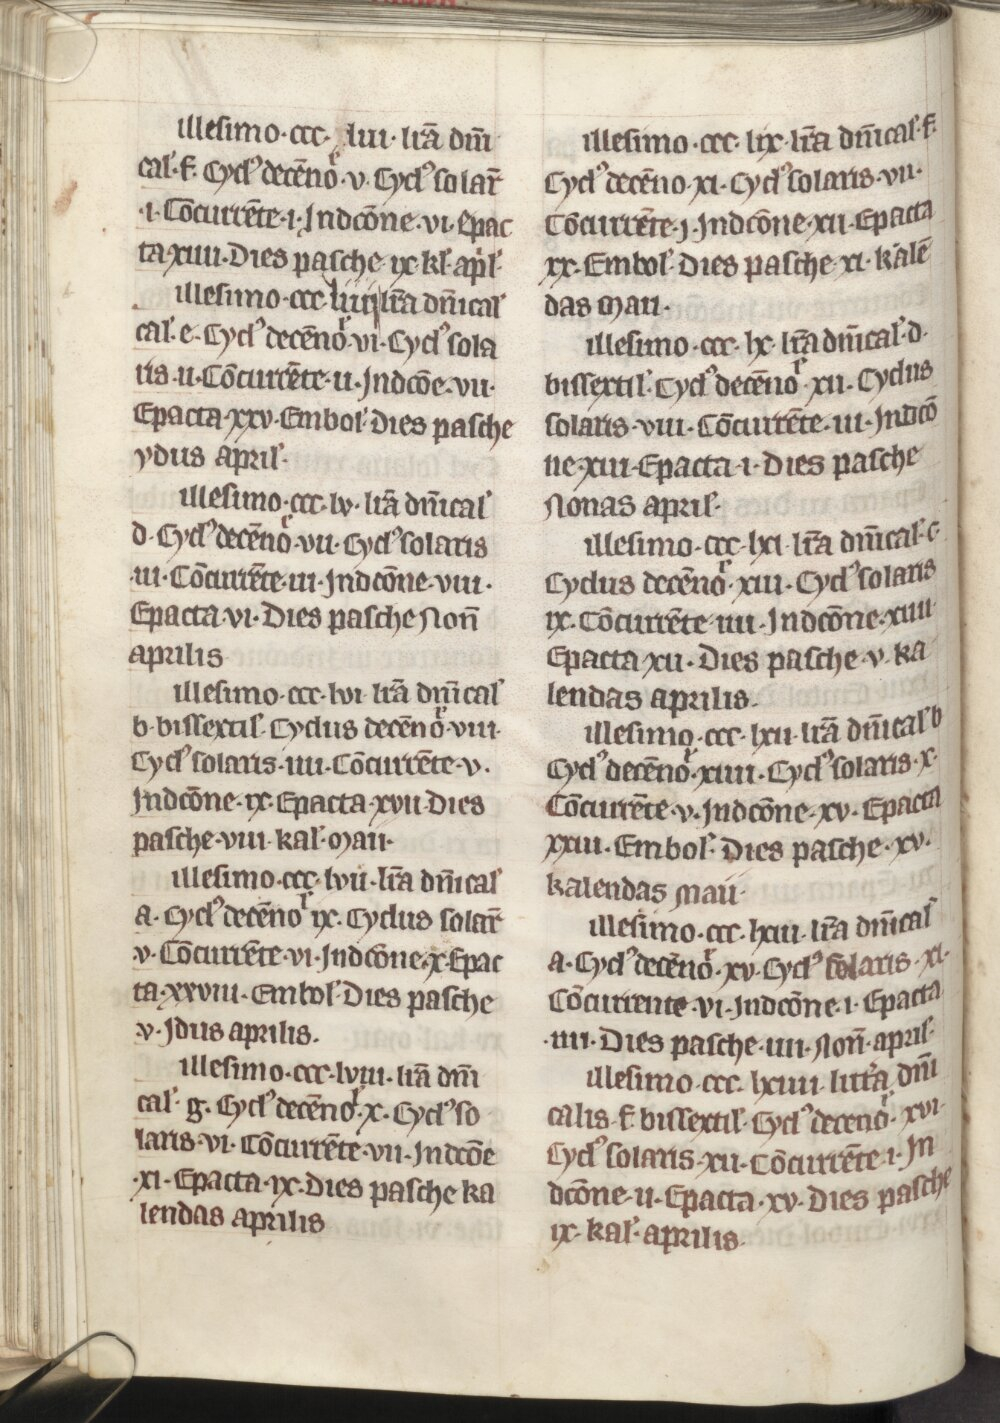 illesimo · ccc · liii · lr̄a dn̄i
cal · f · Cycl⁹ decēno · v · Cycl⁹ solar̄
· i · Cōcurrēte · i · Indcōne · vi · Epac
ta xiiii · Dies pasche ix kl' apl'
illesimo · ccc liiii lr̄a dn̄ical
cal · e · Cycl⁹ decēno · vi · Cycl⁹ sola
ris · ii · Cōcurrēte · ii · Indcōe · vii ·
Epacta · xxv · Embol' Dies pasche
ydus april' ·
illesimo · ccc · lv · lr̄a dn̄ical'
d · Cycl⁹ decēno · vii · Cycl⁹ solaris
· iii · Cōcurrēte · iii · Indcōne · viii ·
Epacta · vi · Dies pasche Non̄
aprilis
illesimo · ccc · lvi · lr̄a dn̄ical'
b · bissextil' · Cyclus decēno · viii ·
Cycl⁹ solaris · iiii · Cōcurrēte · v ·
Indcōne · ix · Epacta · xvii · Dies
pasche · viii · kal' · maii ·
illesimo · ccc · lvii · lr̄a dn̄ical'
a · Cycl⁹ decēno ix · Cyclus solar̄
· v · Cōcurrēte · vi · Indcōne · x · Epac
ta · xxviii · Embol' Dies pasche
· v · Idus aprilis ·
illesimo · ccc · lviii · lr̄a dn̄i
cal' · g · Cycl⁹ decēno · x · Cycl⁹ so
laris · vi · Cōcurrēte · vii · Indcōe
· xi · Epacta · ix · Dies pasche ka
lendas aprilis
illesimo · ccc · lix · lr̄a dn̄ical' · f ·
Cycl⁹ decēno · xi · Cycl⁹ solaris · vii ·
Cōcurrēte · j · Indcōne · xii · Epacta
xx · Embol' Dies pasche · xi · kalē
das maii ·
illesimo · ccc · lx · lr̄a dn̄ical' · d ·
bissextil' · Cycl⁹ decēno · xii · Cyclus
solaris · viii · Cōcurrēte · iii · Indicō
ne · xiii · Epacta · i · Dies pasche
Nonas april' ·
illesimo · ccc · lxi · lr̄a dn̄ical' · c ·
Cyclus decēno · xiii · Cycl⁹ solaris
ix · Cōcurrēte · iiii · Indcōne · xiiii
Epacta xii · Dies pasche · v · ka
lendas aprilis ·
illesimo · ccc · lxii · lr̄a dn̄ical' b
Cycl⁹ decēno · xiiii · Cycl⁹ solaris · x ·
Cōcurrēte · v · Indcōne · xv · Epacta
xxiii · Embol' · Dies pasche · xv ·
kalendas maii ·
illesimo · ccc · lxiii · lr̄a dn̄ical'
a · Cycl⁹ decēno · xv · Cycl⁹ solaris · xi ·
Cōcurrente · vi · Indcōne · i · Epacta
· iiii · Dies pasche · iiii · Non̄ · april'
illesimo · ccc · lxiiii · litt'a dn̄i
calis · f · bissextil' · Cycl⁹ deceno · xvi ·
Cycl⁹ solaris · xii · Cōcurrēte · i · In
dcōne · ii · Epacta · xv · Dies pasche
ix · kal' · aprilis ·